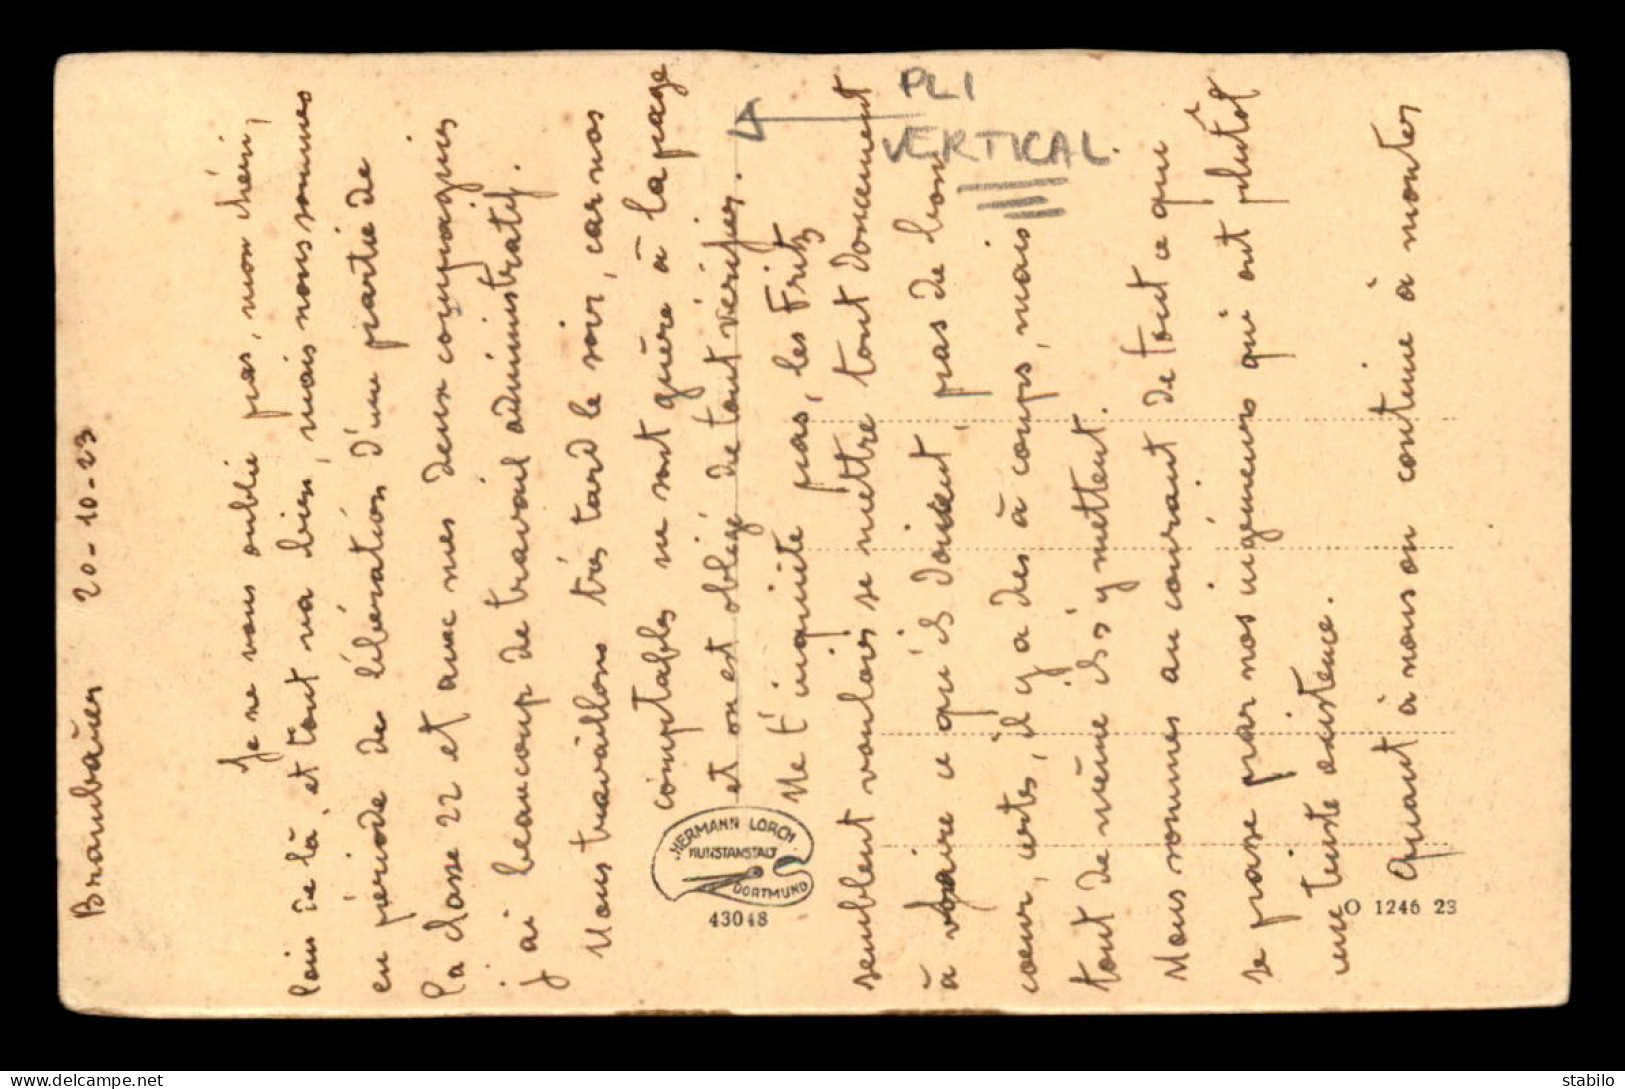 Brambauer 20-10-23
Je ne vous oublie pas, mon chéri,
loin de là, et tout va bien, mais nous sommes
en période de libération d'une partie de
la classe 22 et avec mes deux compagnies
j'ai beaucoup de travail administratif.
Nous travaillons très tard le soir, car nos
comptables ne sont guère à la page
et on est obligé de tout vérifier.
Ne t'inquiète pas, les Fritz
semblent vouloir se mettre tout doucement
à faire ce qu'ils doivent, pas de bon
cœur, certes, il y a des à coups, mais
tout de même ils s'y mettent.
Nous sommes au courant de tout ce qui
se passe par nos ingénieurs qui ont plutôt
une triste existence.
Quant à nous on continue à monter
PLI
VERTICAL.
HERMANN LORCH
KUNSTANSTALT
DORTMUND
43048
O 1246 23
delcampe.net
stabilo